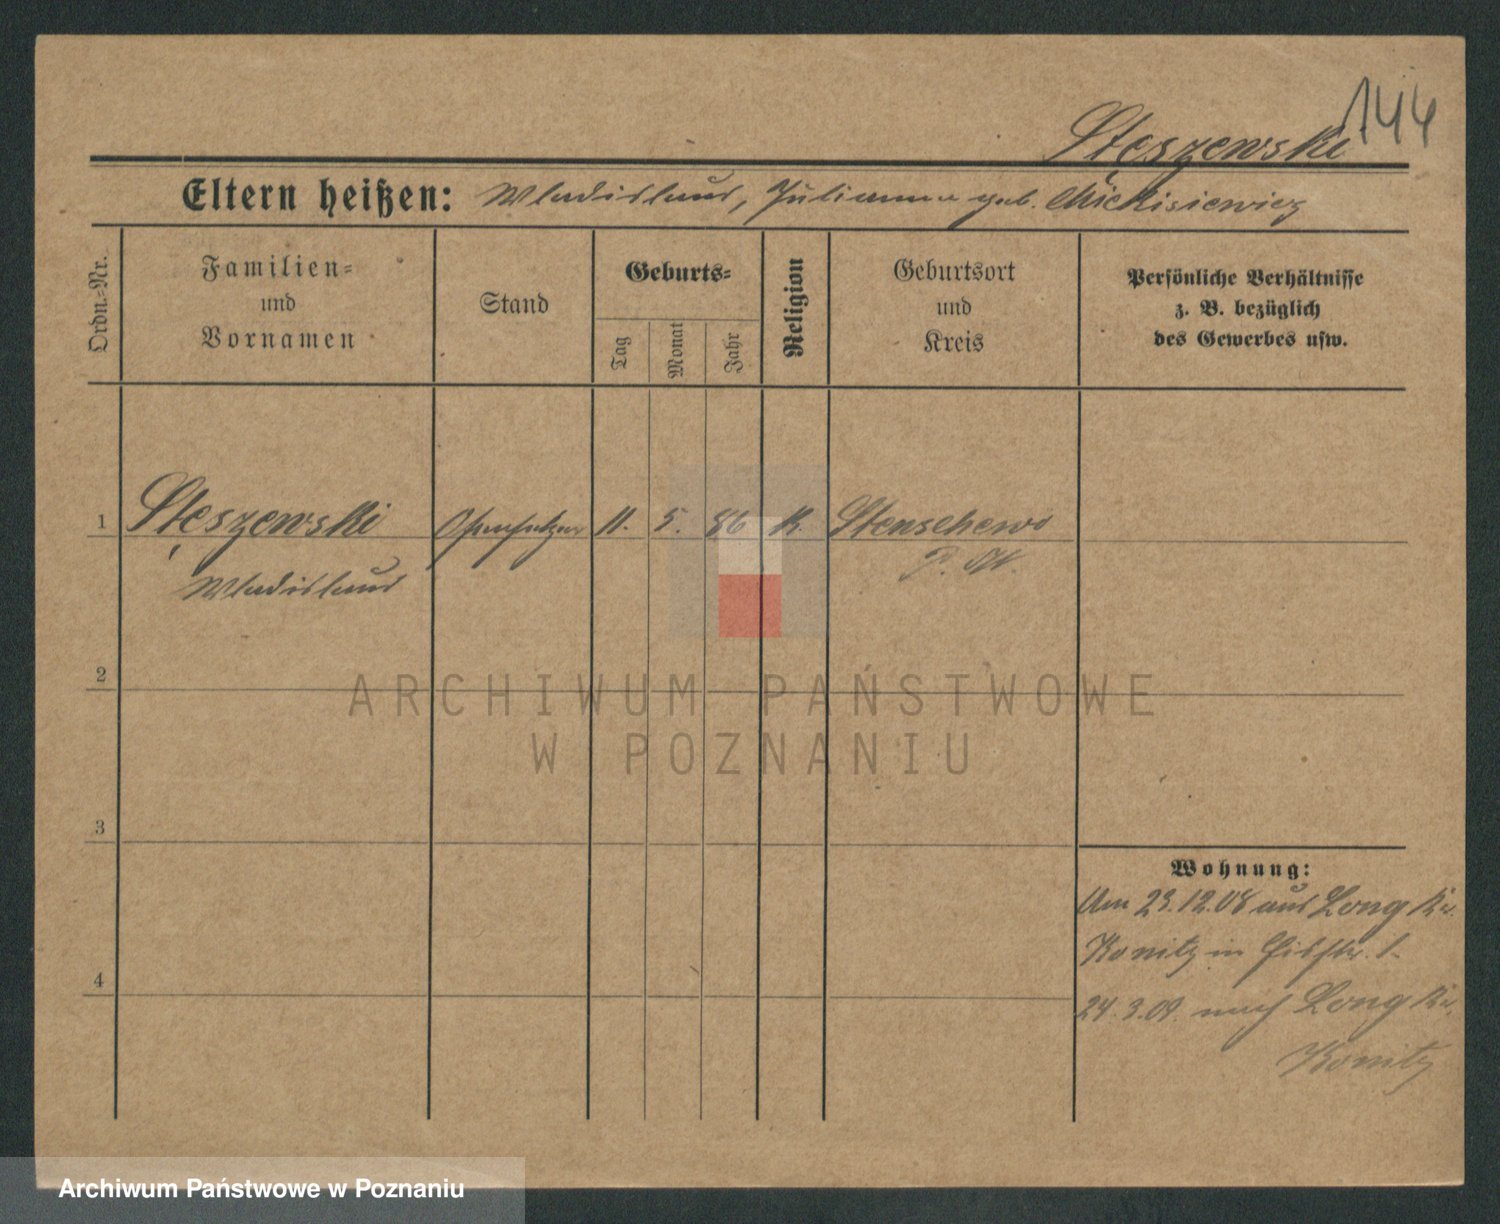 144
Stęszewski
Eltern heißen: Wladislaus, Julianna geb. Mickisiewicz
Ordn.-Nr.
Familien-
und
Vornamen
Stand
Geburts-
Tag
Monat
Jahr
Religion
Geburtsort
und
Kreis
Persönliche Verhältnisse
z. B. bezüglich
des Gewerbes usw.
1 Stęszewski Ofensetzer 11. 5. 86 K. Stenschewo
P. W.
Wladislaus
2
3
4
Wohnung:
Am 23.12.08 aus Long Kr.
Konitz in 1.
24.3.09. nach Long Kr.
Konitz
ARCHIWUM PAŃSTWOWE
W POZNANIU
Archiwum Państwowe w Poznaniu